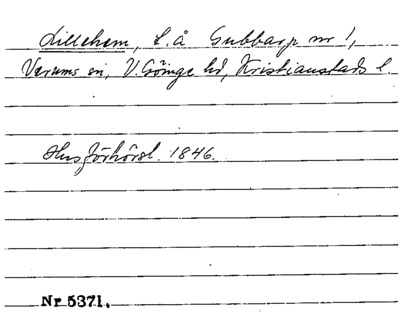 Lillehem, l.å Gubbarp nr 1,
Verums sn, V. Göinge hd, Kristianstads l.
Husförhörsl. 1846.
Nr 5371.